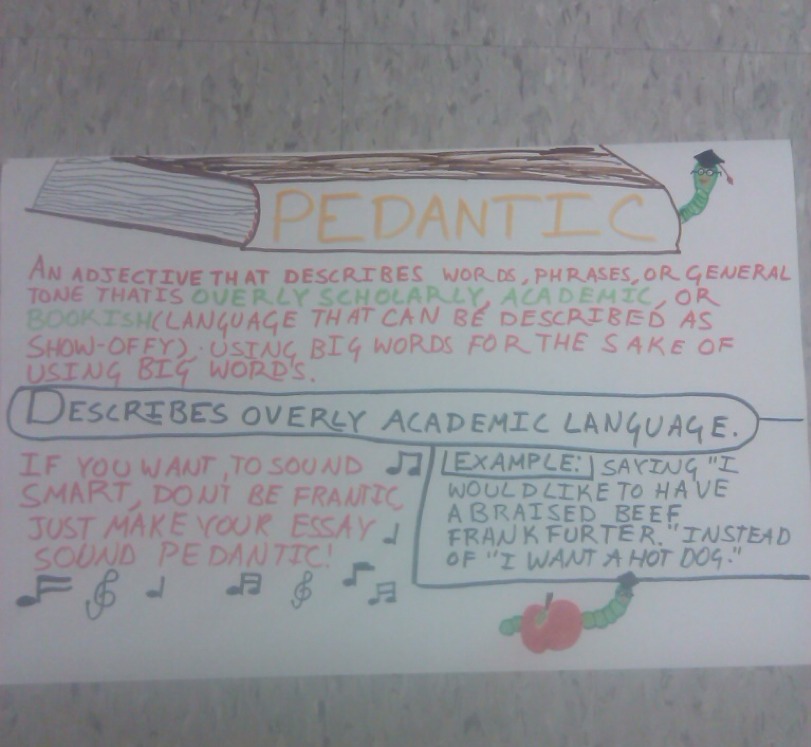 PEDANTIC
AN ADJECTIVE THAT DESCRIBES WORDS, PHRASES, OR GENERAL
TONE THAT IS OVERLY SCHOLARLY, ACADEMIC, OR
BOOKISH (LANGUAGE THAT CAN BE DESCRIBED AS
SHOW-OFFY). USING BIG WORDS FOR THE SAKE OF
USING BIG WORDS.
DESCRIBES OVERLY ACADEMIC LANGUAGE.
IF YOU WANT TO SOUND
SMART, DON'T BE FRANTIC,
JUST MAKE YOUR ESSAY
SOUND PEDANTIC!
EXAMPLE: SAYING "I
WOULD LIKE TO HAVE
A BRAISED BEEF
FRANKFURTER." INSTEAD
OF "I WANT A HOT DOG."